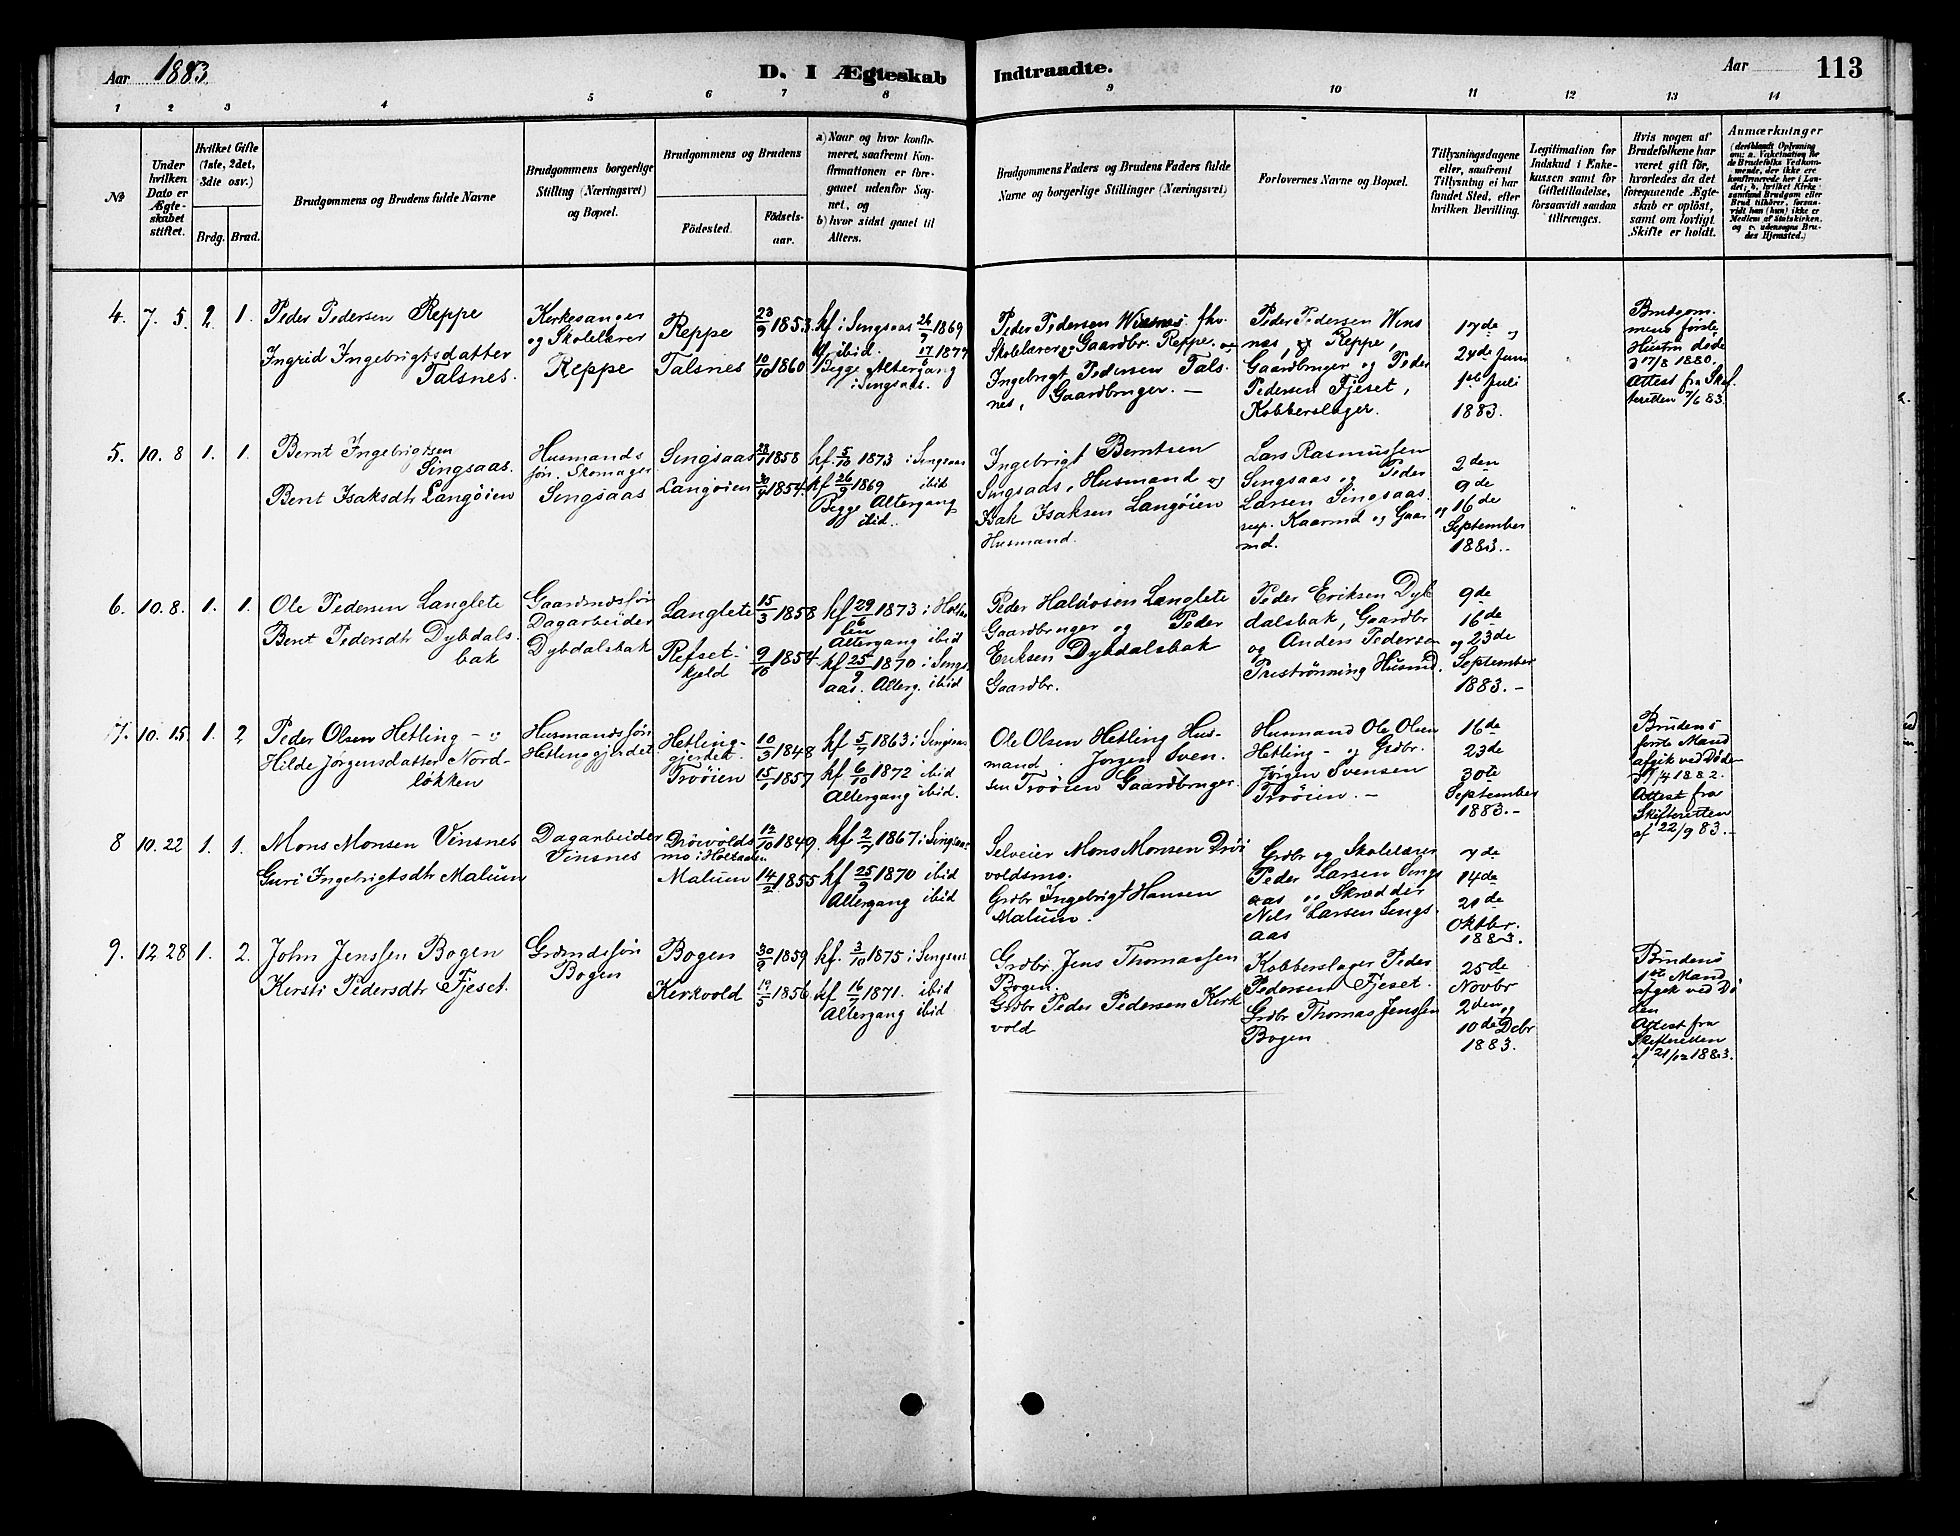 Aar 1883
D. I Ægteskab Indtraadte.
Aar
113
1 2 3 4 5 6 7 8 9 10 11 12 13 14
№
Under hvilken Dato er Ægteskabet stiftet.
Hvilket Gifte (1ste, 2det, 3die osv.)
Brdg. Brud.
Brudgommens og Brudens fulde Navne
Brudgommens borgerlige Stilling (Næringsvei) og Bopæl.
Brudgommens og Brudens
Födested.
Födselsaar.
a) Naar og hvor konfirmeret, saafremt Konfirmationen er foregaaet udenfor Sognet, og
b) hvor sidst gaaet til Alters.
Brudgommens Faders og Brudens Faders fulde Navne og borgerlige Stillinger (Næringsvei)
Forlovernes Navne og Bopæl.
Tillysningsdagene eller, saafremt Tillysning ei har fundet Sted, efter hvilken Bevilling.
Legitimation for Indskud i Enkekassen samt for Giftetilladelse, forsaavidt saadan tiltrænges.
Hvis nogen af Brudefolkene har været gift før, hvorledes da det foregaaende Ægteskab er opløst, samt om lovligt Skifte er holdt.
Anmærkninger
4. 7. 5. 2. 1. Peder Pedersen Reppe
Ingrid Ingebrigtsdatter
Talsnes.
Kirkesanger
og Skolelærer
Reppe
Reppe 23/9 1853.
Talsnes 10/10 1860
kf. i Singsaas 26/9 1869
ibid. 1874
Begge Altergang
i Singsaas.
Peder Pedersen Winsnes fhv.
Skolelærer og Gaardbr. Reppe. og
Ingebrigt Pedersen Tals-
nes, Gaardbruger. —
Peder Pedersen Wins
nes, og Reppe,
Gaardbruger og Peder
Pedersen Fjeset,
Kobberslager.
17de og
24de Juni
1ste Juli
1883.
Brudgom-
mens første
Hustru døde
d 17/8 1880.
Attest fra Skif-
teretten 7/6 83.
5. 10. 8 1. 1. Bernt Ingebrigtsen
Singsaas.
Berit Isaksdtr Langøien
Husmands
søn. Skomager
Singsaas
Singsaas 1858
Langøien 1854.
kf. 5/10 1873 i Singsaas
kf 26/9 1869 ibid
Begge Altergang
ibid.
Ingebrigt Berntsen
Singsaas, Husmand og
Isak Isaksen Langöien
Husmand.
Lars Rasmussen
Singsaas og Peder
Larsen Singsaas.
resp. Kaarmd og Gaar
md.
2den
9de
og 16de
September
1883. -
6. 10. 8. 1. 1. Ole Pedersen Langlete
Berit Pedersdtr Dybdals-
bak
Gaardmdssøn
Dagarbeider
Dybdalsbak
Langlete 15/3 1858
Refset-
kjeld 9/10 1854.
kf 29/6 1873 i Holtaa
len
Altergang ibid
kf 25/9 1870 i Sings
aas. Alterg. ibid
Peder Halvorsen Langlete
Gaardbruger og Peder
Eriksen Dybdalsbak
Gaardbr.
Peder Eriksen Dyb
dalsbak, Gaardbr
og Anders Pedersen
Prestrønning Husmd.
9de
16de
og 23de
September
1883. -
7. 10. 15. 1. 2 Peder Olsen Hetling -
Hilde Jørgensdatter Nord-
løkken
Husmandssøn
Hetlinggjerdet
Hetling-
gjerdet. 10/3 1848
Troöien 15/1 1857
kf 5/7 1863 i Singsaas
kf 6/10 1872 ibid
Altergang ibid.
Ole Olsen Hetling Hus-
mand. Jørgen Sven.
sen Troöien Gaardbruger.
Husmand Ole Olsen
Hetling - og Grdbr.
Jørgen Svensen
Troöien. -
16de
23de
30te
September
1883. -
Brudens
første Mand
afgik ved Døden
1882.
Attest fra
Skifteretten
af 22/9 83. -
8 10. 22 1. 1. Mons Monsen Vinsnes
Guri Ingebrigtsdtr Malum
Dagarbeider
Vinsnes
Dröivolds
mo i Holtaalen 12/10 1849.
Malum 14/2 1855
kf 2/7 1867 i Singsaas
kf 25/9 1870 ibid
Altergang ibid
Selveier Mons Monsen Dröi
voldsmo.
Grdbr Ingebrigt Hansen
Malum.
Grdbr og Skolelærer
Peder Larsen Sings
aas og Skrædder
Nils Larsen Sings.
aas
7de
14de
21de
Oktbr.
1883.
9. 12. 28 1. 2. John Jenssen Bogen
Kirsti Pedersdtr Fjeset.
Grdmdssøn
Bogen
Bogen 1859
Kirkvold 1856.
kf. 3/10 1875 i Singsaas
kf 16/7 1871. ibid
Altergang ibid
Grdbr. Jens Thomassen
Bogen.
Grdbr Peder Pedersen Kirk
vold
Kobberslager Peder
Pedersen Fjeset.
Grdbr Thomas Jenssen
Bogen
25de
Novbr
2den og
10de Debr
1883.
Brudens
1ste Mand
afgik ved Dö
den
Attest fra
Skifteretten
af 21/12 1883.